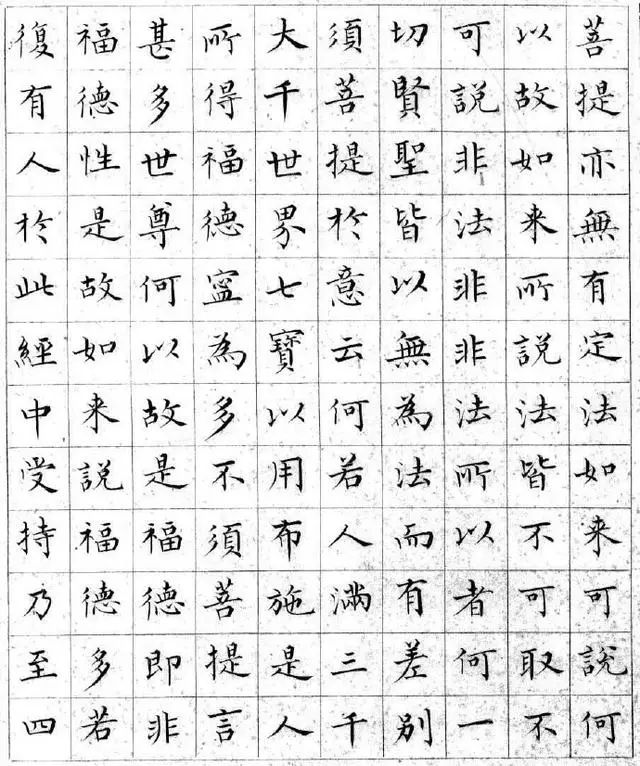 菩提亦無有定法如来可說何
以故如来所說法皆不可取不
可說非法非非法所以者何一
切賢聖皆以無為法而有差別
須菩提於意云何若人滿三千
大千世界七寶以用布施是人
所得福德寧為多不須菩提言
甚多世尊何以故是福德即非
福德性是故如来說福德多若
復有人於此經中受持乃至四